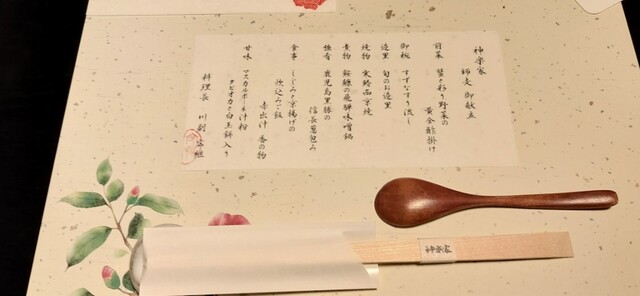 神楽家
師走 御献立
前菜 蟹と彩り野菜の
黄金酢掛け
御椀 すずなすり流し
造里 旬のお造里
焼物 寒鰆西京焼
煮物 飛騨味噌鍋
強肴 鹿児島黒豚の
信長葱包み
食事 しじみと京揚げの
炊込みご飯
赤出汁 香の物
甘味 マスカルポーネ汁粉
タピオカと白玉餅入り
料理長 川副
神楽家